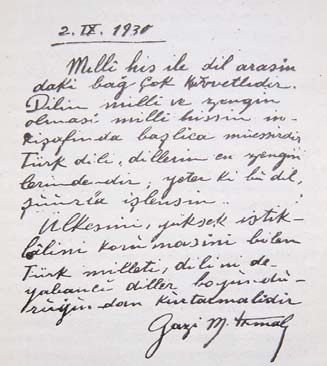 2. IX. 1930
Milli his ile dil arasin
daki bağ çok kuvvetlidir.
Dilin milli ve zengin
olması milli hissin in-
kişafında başlica müessirdir
Türk dili, dillerin en zengin
lerindendir; yeter ki bu dil,
şuurla işlensin..
Ülkesini, yüksek istik-
lâlini korumasını bilen
Türk milleti, dilini de
yabancı diller boyundu-
ruğundan kurtarmalıdır
Gazi M. Kemal